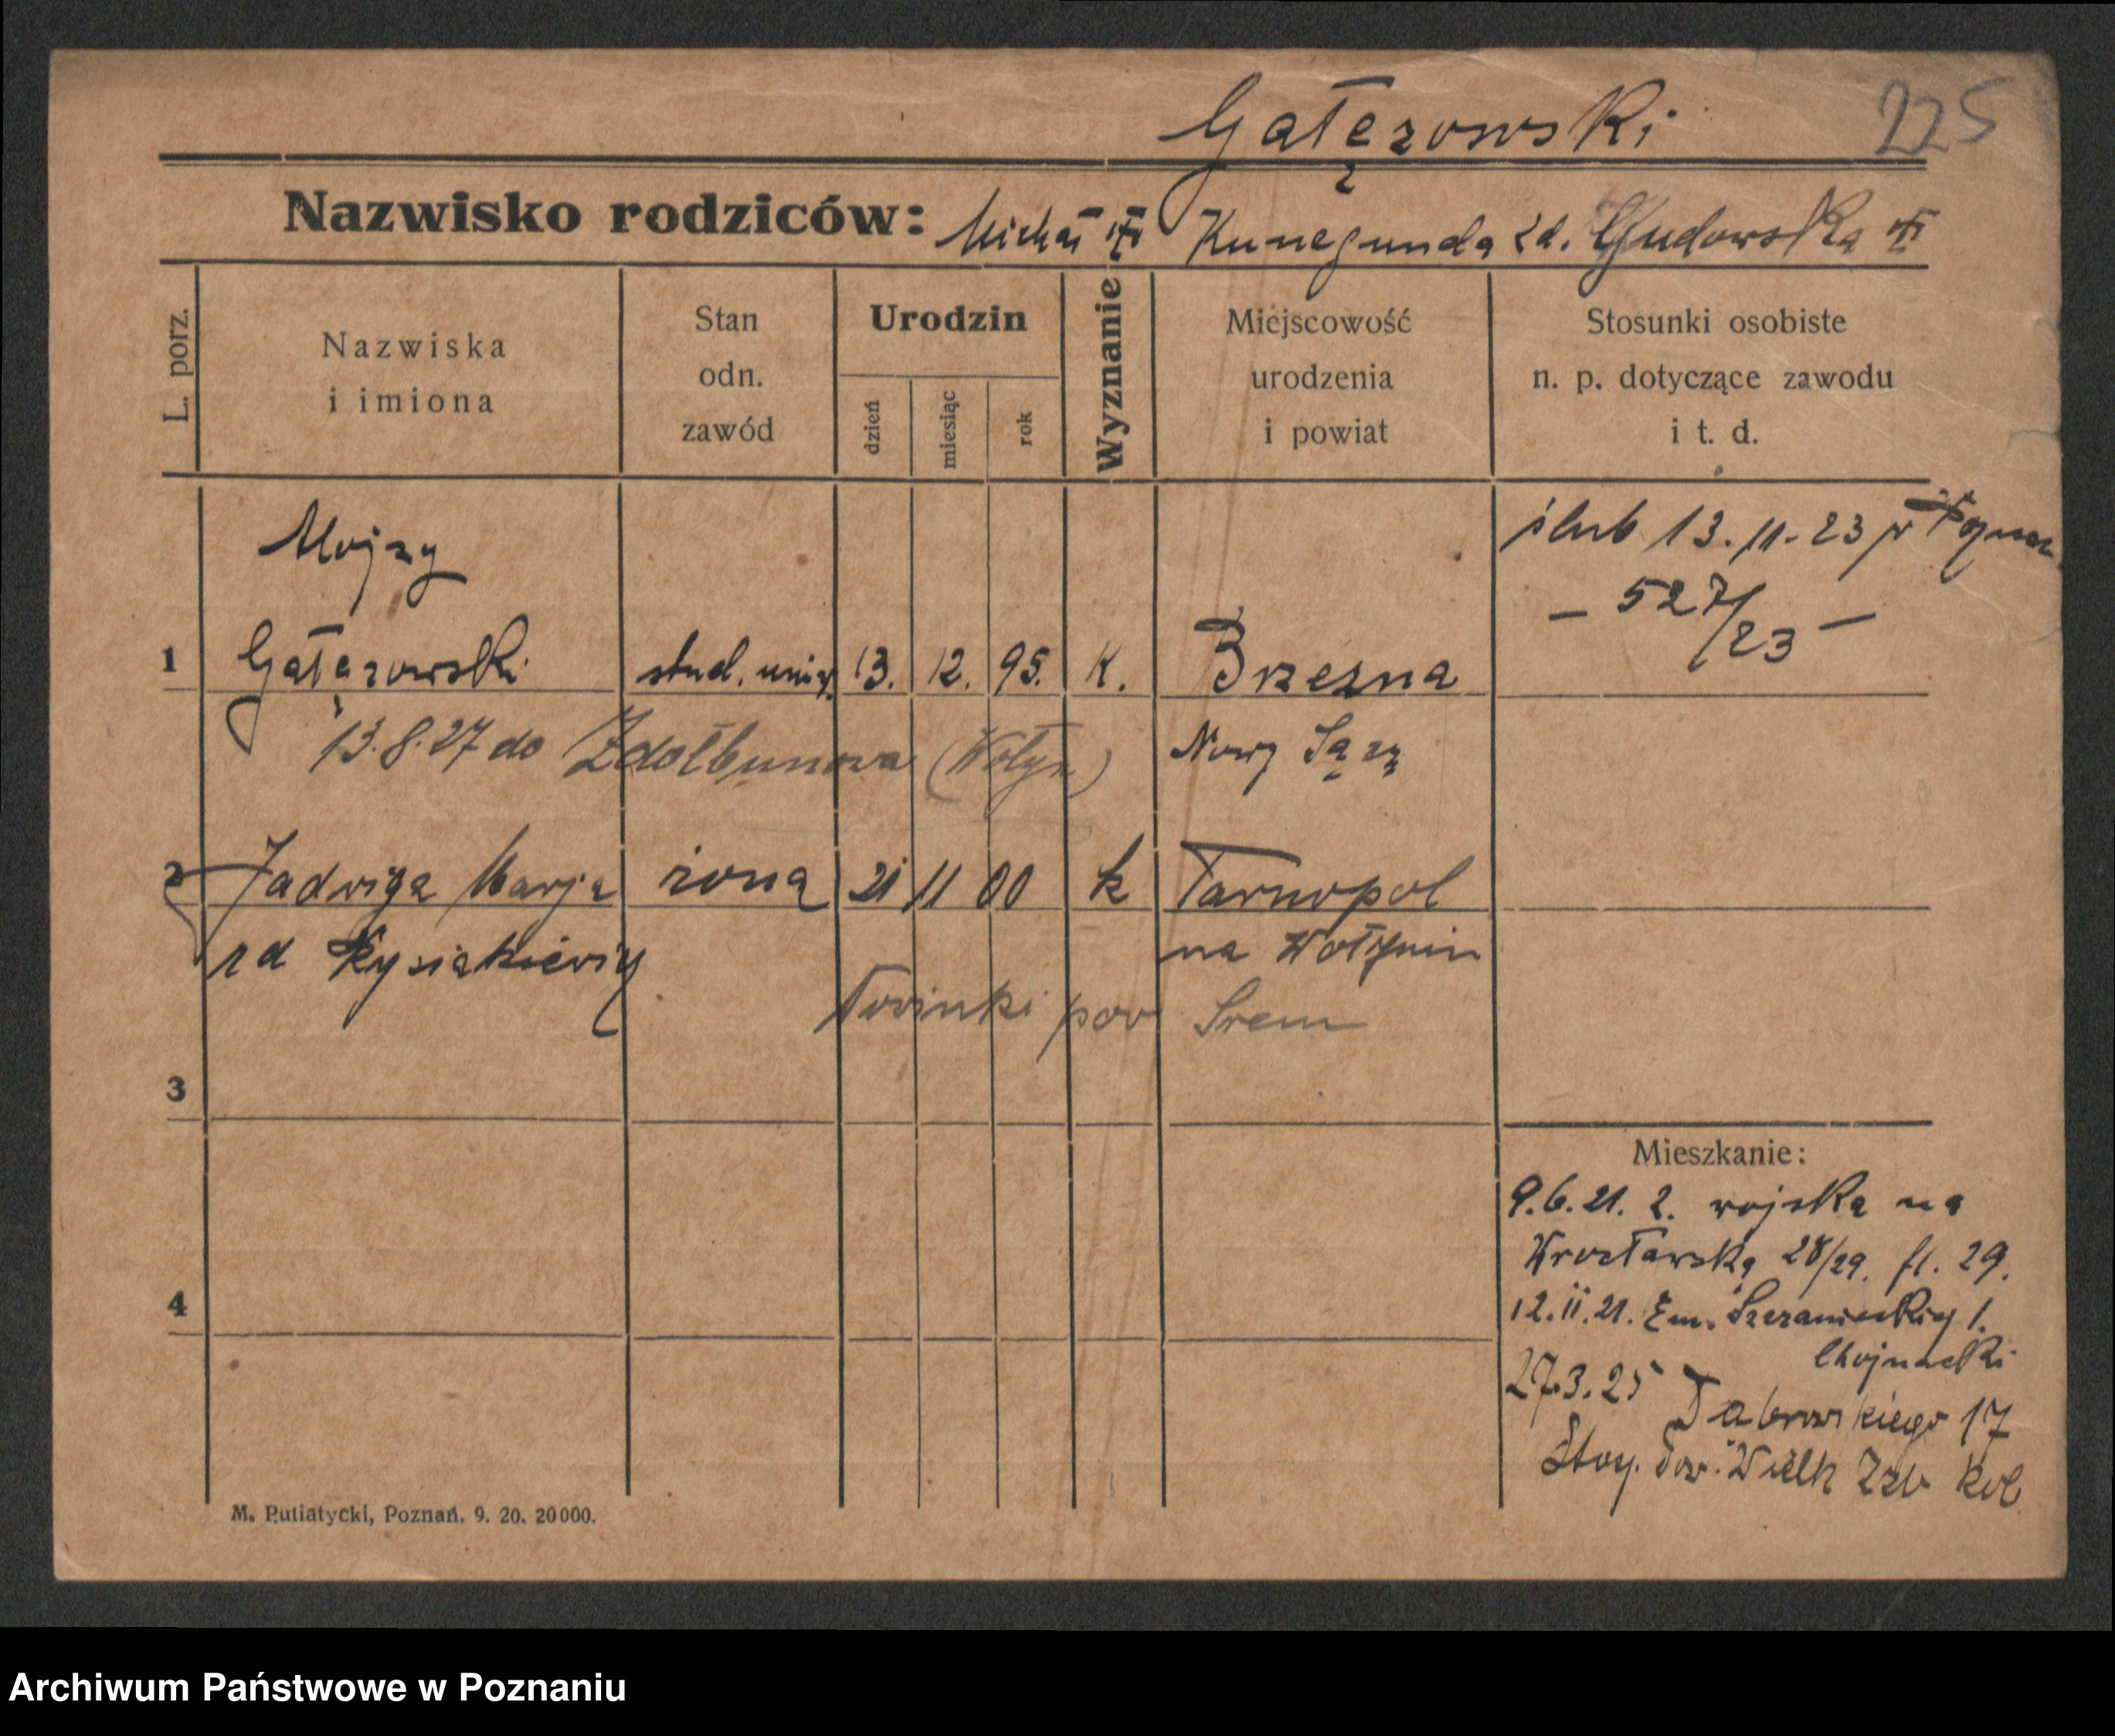 Gałęzowski 225
Nazwisko rodziców: Michał Kunegunda zd. Gudowska
L. porz.
Nazwiska
i imiona
Stan
odn.
zawód
Urodzin
dzień
miesiąc
rok
Wyznanie
Miejscowość
urodzenia
i powiat
Stosunki osobiste
n. p. dotyczące zawodu
i t. d.
Alojzy
ślub 13.11.23 w Poznan
– 527/23 –
1 Gałęzowski stud. uniw. 13. 12. 95. K. Brzezna
13.8.27 do Zdołbunowa (Wołyn) Nowy Sącz
2 Jadwiga Marja żona 21 11 00 k Tarnopol
zd na Wołyniu
pow Srem
3
Mieszkanie:
9.6.21. z wojska na
Wrocławską 28/29. fl. 29.
4
12.11.21. Em. Szczanieckiej 1.
Chojnacki
27.3.25 Dąbrowskiego 17
Wielk
M. Putiatycki, Poznań. 9. 20. 20000.
Archiwum Państwowe w Poznaniu